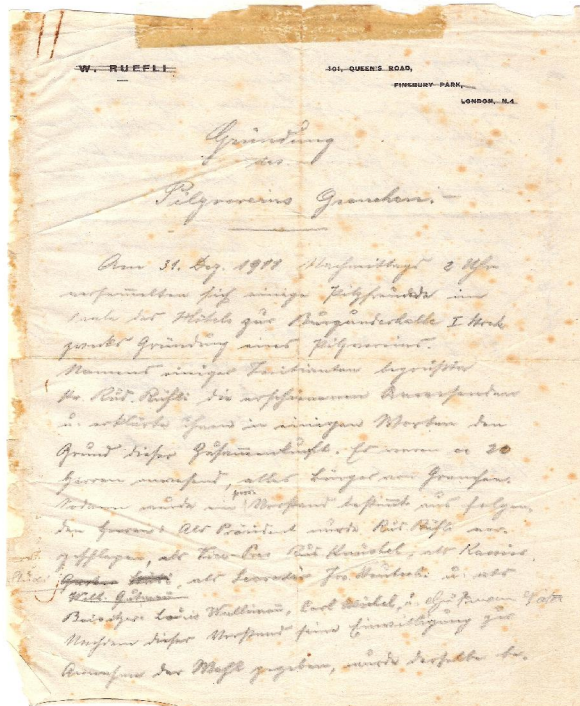 W. RUEFLI
101, QUEEN'S ROAD,
FINSBURY PARK,
LONDON, N.4.
Gründung
des
Pilzvereins Grenchen.
Am 31. Dez. 1911 Nachmittags 2 Uhr
versammelten sich einige Pilzfreunde im
Saale des Hôtels zur Burgunderhalle I Stock
zwecks Gründung eines Pilzvereins.
Namens einiger Initianten begrüsste
Hr. Rüefli die erschienenen Anwesenden
u. erklärte ihnen in einigen Worten den
Grund dieser Zusammenkunft. Es waren ca 20
Herren anwesend, alles Bürger von Grenchen.
Sodann wurde ein prov. Vorstand bestimmt aus folgen
den Herren: Als Präsident wurde Rüefli vor
geschlagen, als Vice-Pres , als Kassier
als Secretär u. als
Beisitzer Louis Wullimann, Carl u.
Nachdem dieser Vorstand seine Einwilligung zur
Annahme der Wahl gegeben, wurde derselbe be-